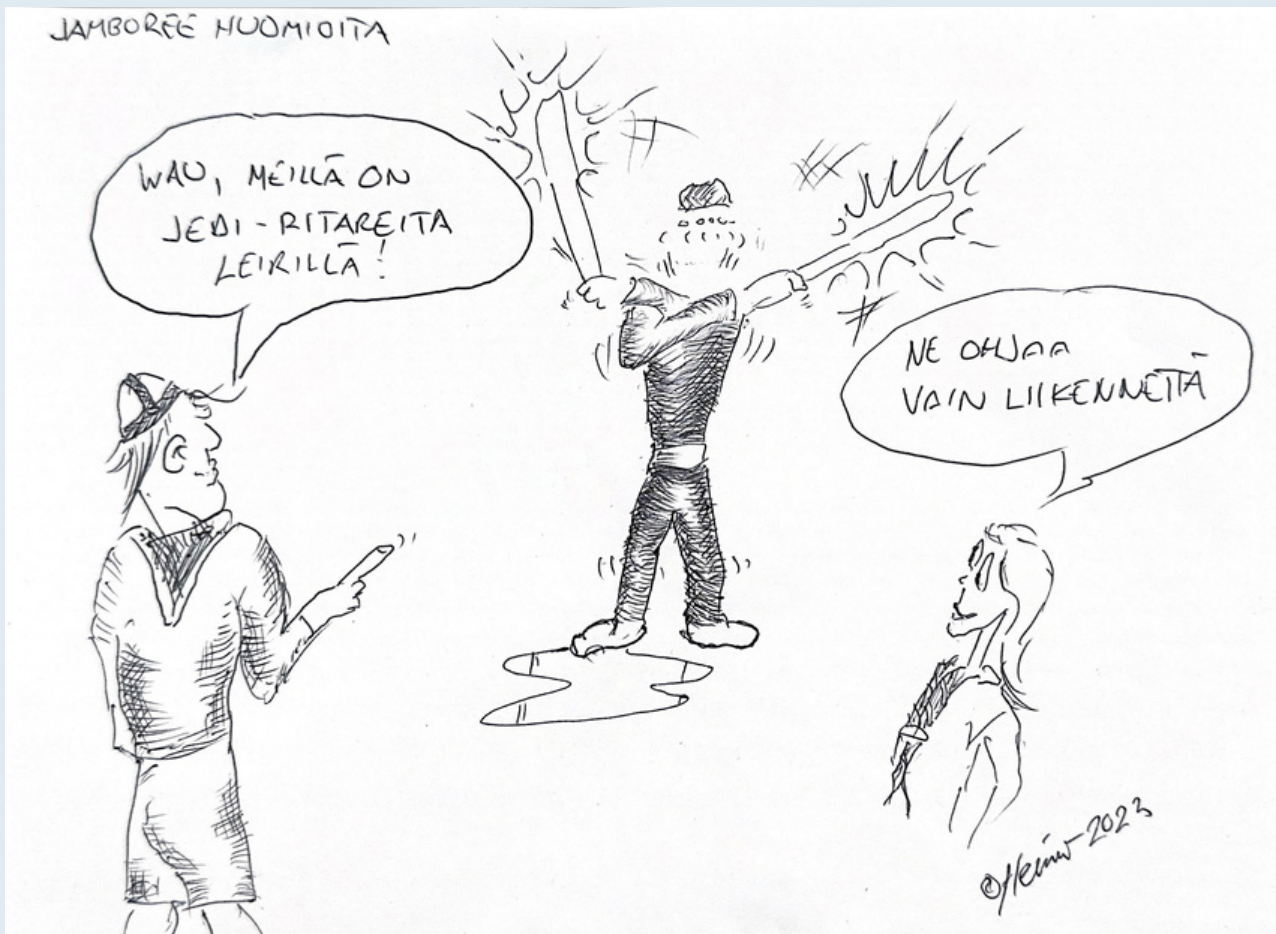 JAMBOREE HUOMIOITA
WAU, MEILLÄ ON
JEDI-RITAREITA
LEIRILLÄ!
NE OHJAA
VAIN LIIKENNETTÄ
© 2023